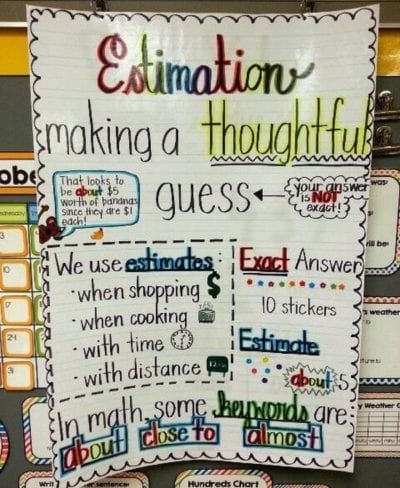 Estimation
making a thoughtful
That looks to
be about $5
worth of bananas
since they are $1
each!
guess
your answer
is NOT
exact!
We use estimates:
· when shopping $
· when cooking
· with time
· with distance
Exact Answer
10 stickers
Estimate
about 5
In math, some keywords are:
about close to almost
Hundreds Chart